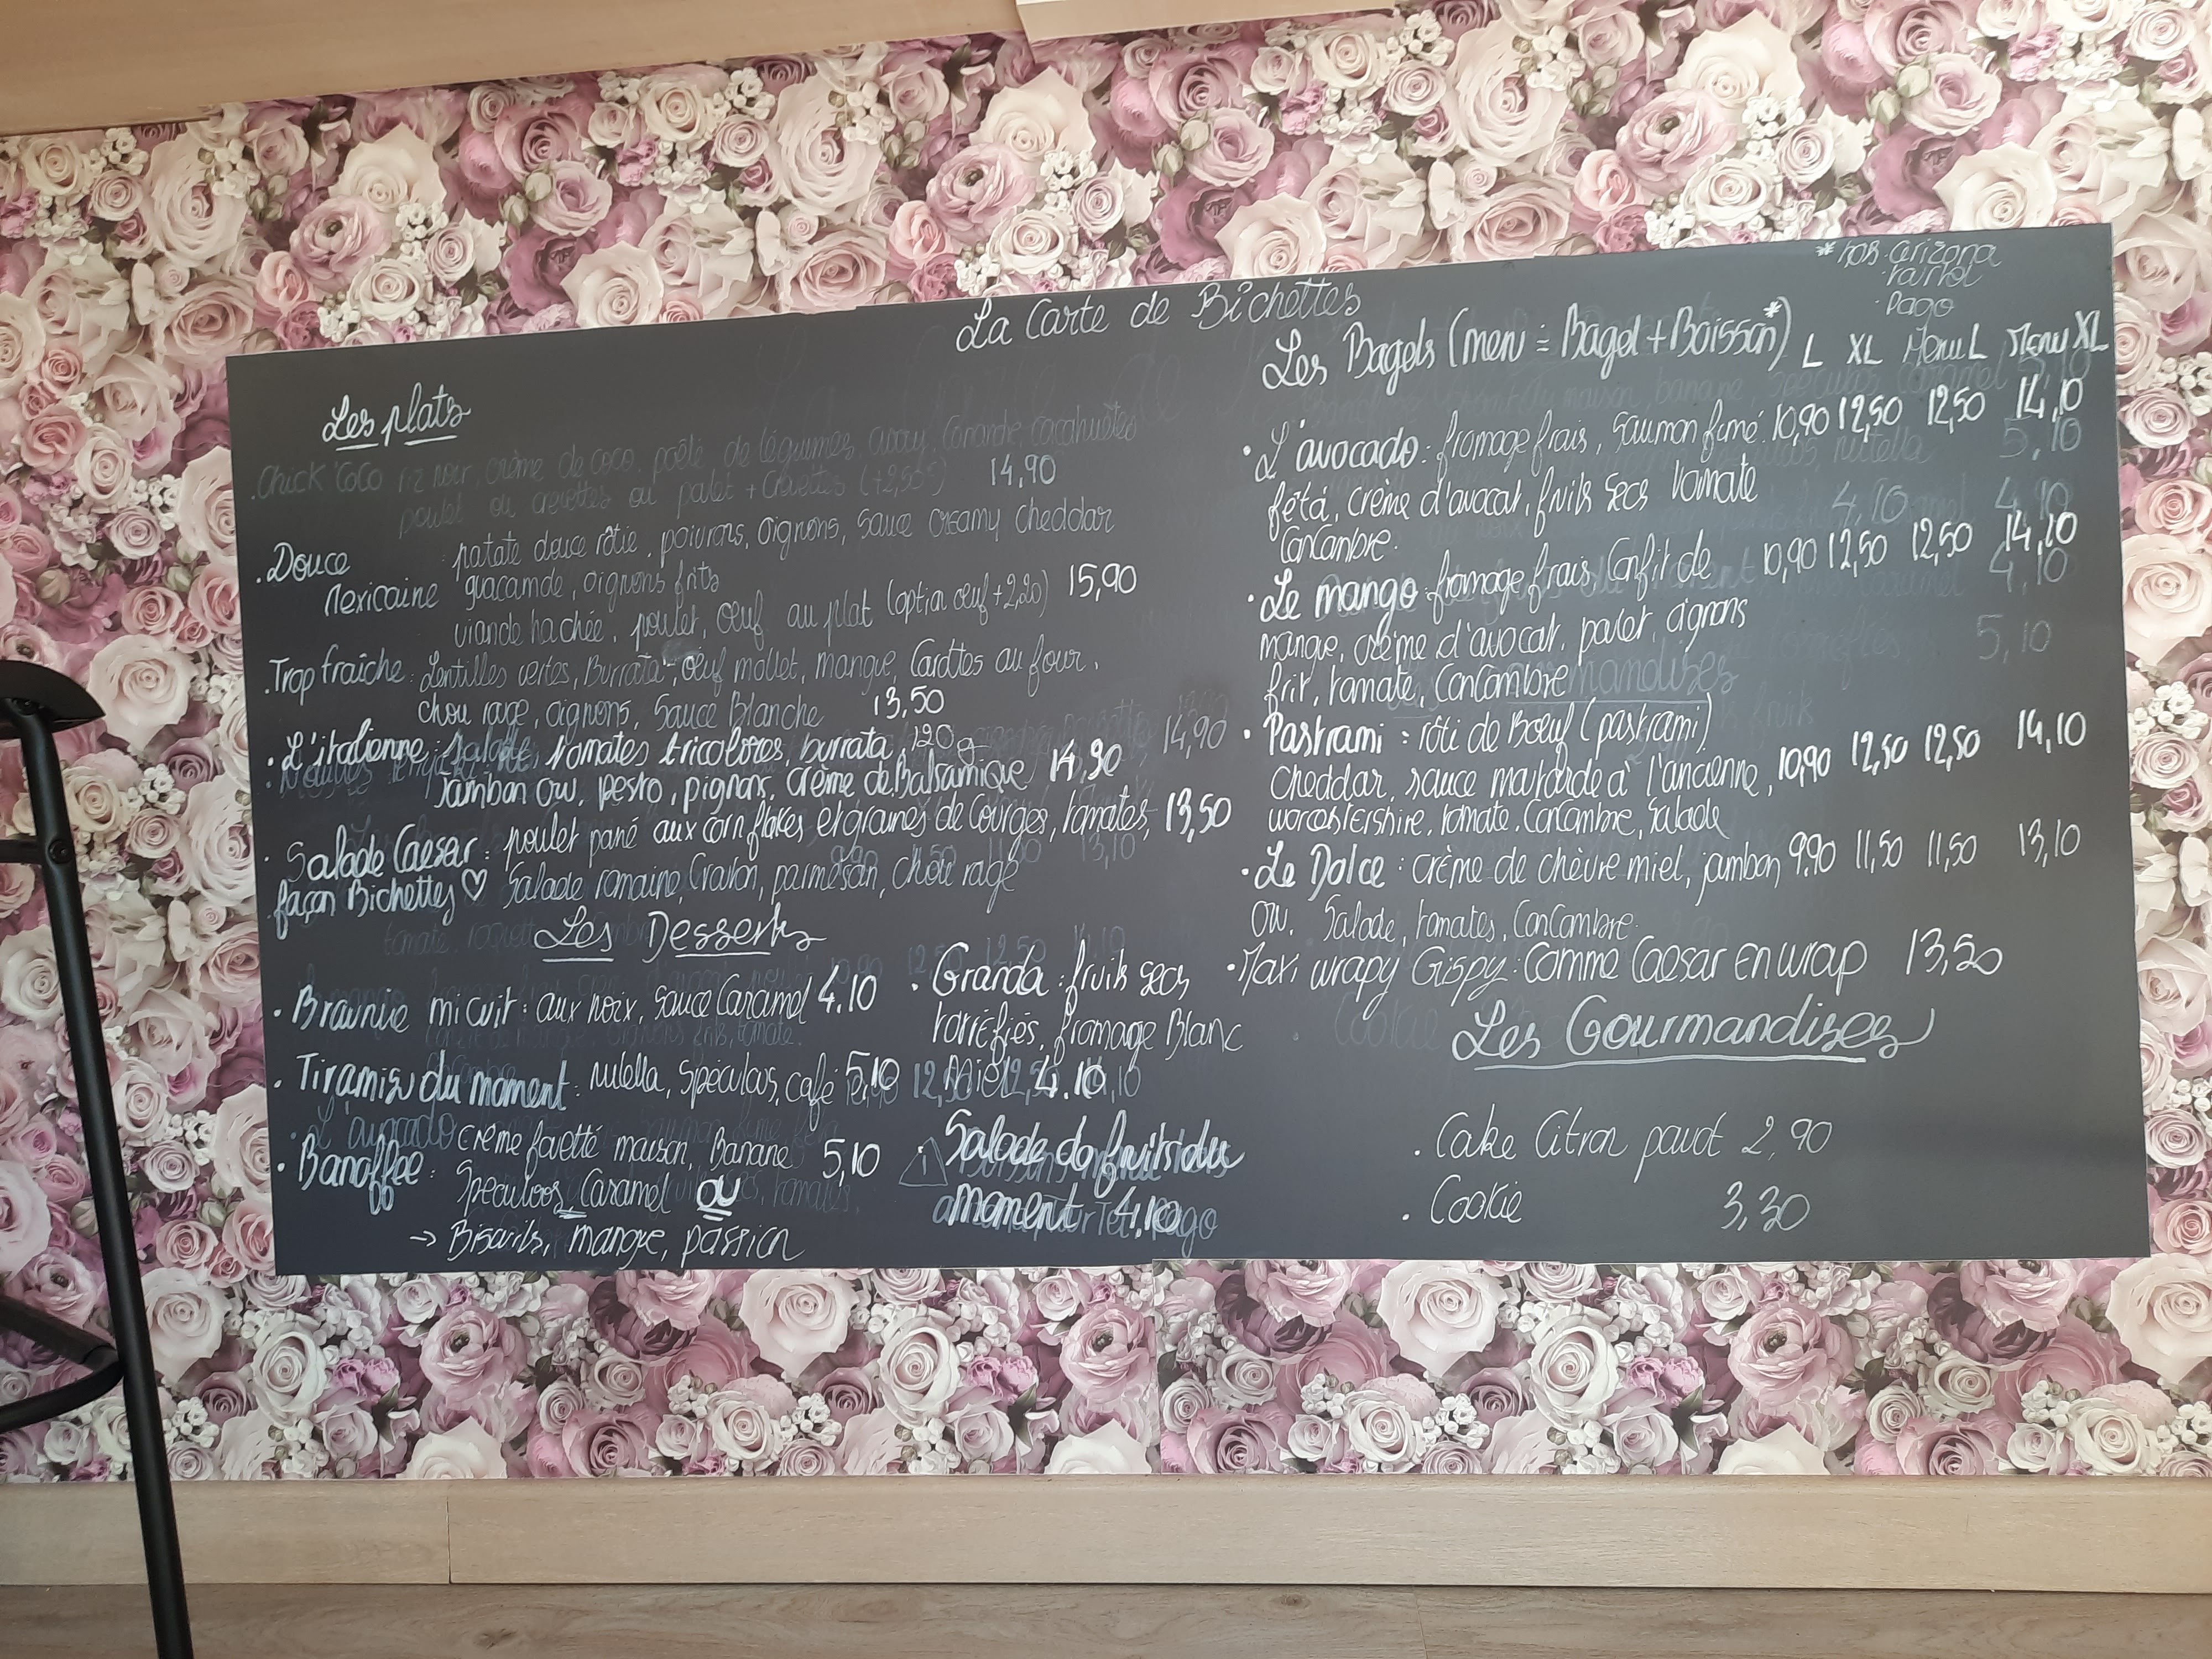 La Carte de Bichettes
Les plats
. Chick CoCo riz noir, crème de coco, poêlé de légumes, curry, Coriande, cacahuètes
poulet ou crevettes ou poulet + Crevettes (+2,50€) 14,90
. Douce : patate douce rôtie, poivrons, oignons, sauce creamy cheddar
Mexicaine guacamole, oignons frits
viande hachée, poulet, oeuf au plat (option oeuf +2,20) 15,90
. Trop fraîche : Lentilles vertes, Burrata, oeuf mollet, mangue, Carottes au four,
chou rouge, oignons, Sauce Blanche 13,50
. L'italienne : salade, tomates tricolores, burrata 120 g
Jambon cru, pesto, pignons, Crème de Balsamique 14,90
. Salade Caesar : poulet pané aux corn flakes et graines de Courges, tomates, 13,50
façon Bichettes ♡ Salade romaine, Crouton, parmesan, chou rage
Les Desserts
. Brownie mi cuit : aux noix, sauce Caramel 4.10
. Tiramisu du moment : nutella, Speculos, café 5,10
. Banoffee : crème fouetté maison, Banane 5,10
Speculoos, Caramel OU
→ Biscuits, mangue, passion
. Granola : fruits secs
torréfiés, fromage Blanc
Miel 4.10
. Salade de fruits du
moment 4,10
* hors arizona
Pago
Les Bagels (menu = Bagel + Boisson*) L XL Menu L Menu XL
. L'avocado : fromage frais, Saumon fumé 10,90 12,50 12,50 14,10
féta, crème d'avocat, fruits secs tomate
ConCombre.
. Le mango : fromage frais Confit de 10,90 12,50 12,50 14,10
mangue, crème d'avocat, poulet, oignons
frit, tomate, ConCombre
. Pastrami : rôti de Boeuf (pastrami)
cheddar, sauce moutarde à l'ancienne, 10,90 12,50 12,50 14,10
worchtershire, tomate, ConCombre, Salade
. Le Dolce : crème de chèvre miel, jambon 9.90 11,50 11,50 13,10
cru, Salade, tomates, ConCombre.
. Maxi wrapy Gispy : Comme Caesar en wrap 13,50
Les Gourmandises
. Cake Citron pavot 2,90
. Cookie 3,30